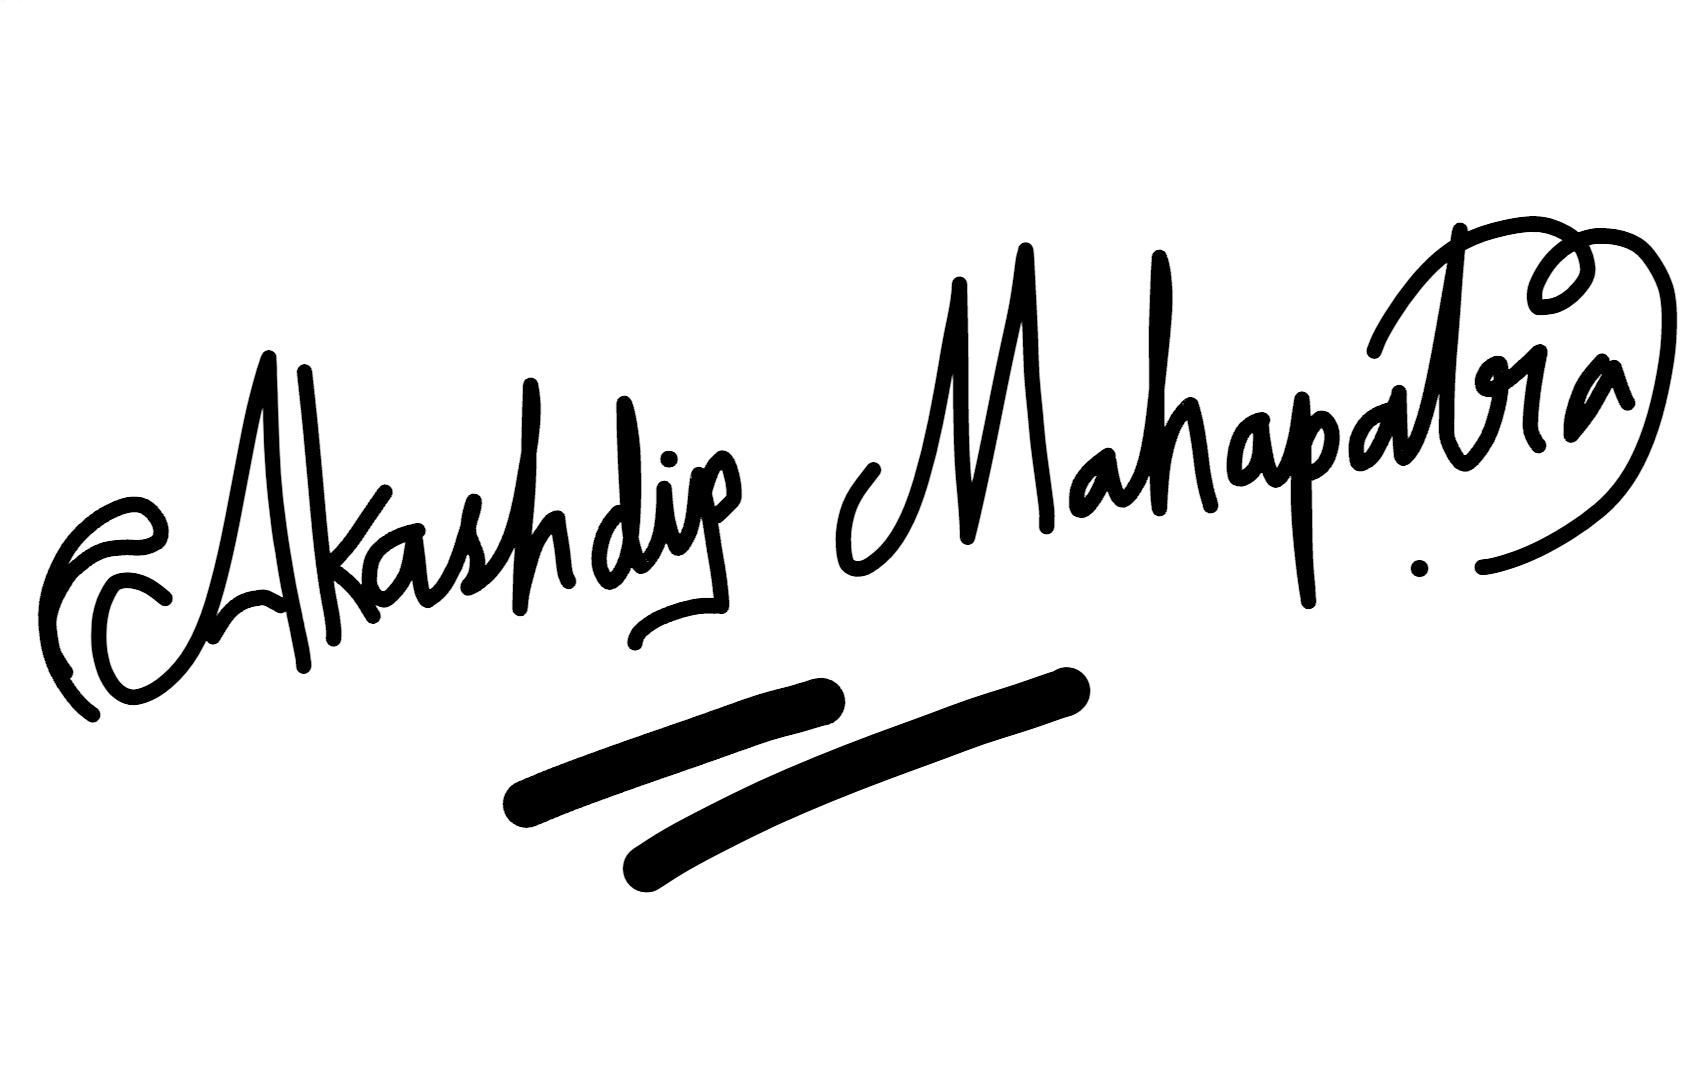 Akashdip Mahapatra